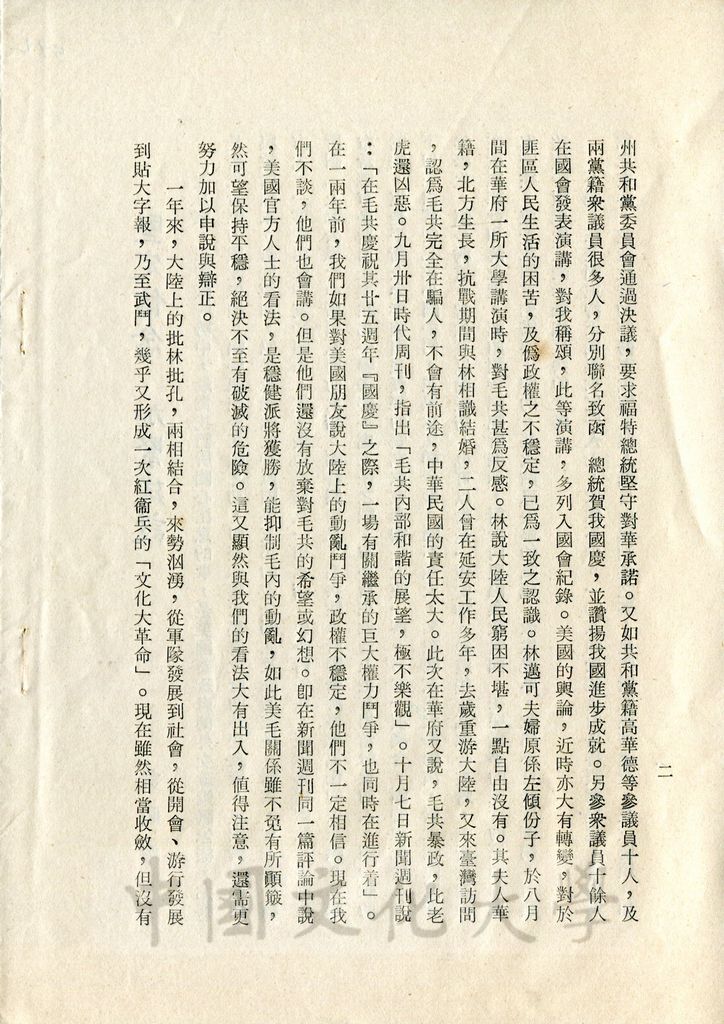 二
州共和黨委員會通過決議，要求福特總統堅守對華承諾。又如共和黨籍高華德等參議員十人，及
兩黨籍衆議員很多人，分別聯名致函　總統賀我國慶，並讚揚我國進步成就。另參衆議員十餘人
在國會發表演講，對我稱頌，此等演講，多列入國會紀錄。美國的輿論，近時亦大有轉變，對於
匪區人民生活的困苦，及僞政權之不穩定，已爲一致之認識。林邁可夫婦原係左傾份子，於八月
間在華府一所大學講演時，對毛共甚爲反感。林說大陸人民窮困不堪，一點自由沒有。其夫人華
籍，北方生長，抗戰期間與林相識結婚，二人曾在延安工作多年，去歲重游大陸，又來臺灣訪問
，認爲毛共完全在騙人，不會有前途，中華民國的責任太大。此次在華府又說，毛共暴政，此老
虎還凶惡。九月卅日時代周刊，指出「毛共內部和諧的展望，極不樂觀」。十月七日新聞週刊說
：「在毛共慶祝其廿五週年『國慶』之際，一場有關繼承的巨大權力鬥爭，也同時在進行着」。
在一兩年前，我們如果對美國朋友說大陸上的動亂鬥爭，政權不穩定，他們不一定相信。現在我
們不談，他們也會講。但是他們還沒有放棄對毛共的希望或幻想。卽在新聞週刊同一篇評論中說
，美國官方人士的看法，是穩健派將獲勝，能抑制毛內的動亂，如此美毛關係雖不免有所顚簸，
然可望保持平穩，絕決不至有破滅的危險。這又顯然與我們的看法大有出入，值得注意，還需更
努力加以申說與辯正。
一年來，大陸上的批林批孔，兩相結合，來勢洶湧，從軍隊發展到社會，從開會、游行發展
到貼大字報，乃至武鬥，幾乎又形成一次紅衞兵的「文化大革命」。現在雖然相當收斂，但沒有
中國文化大學